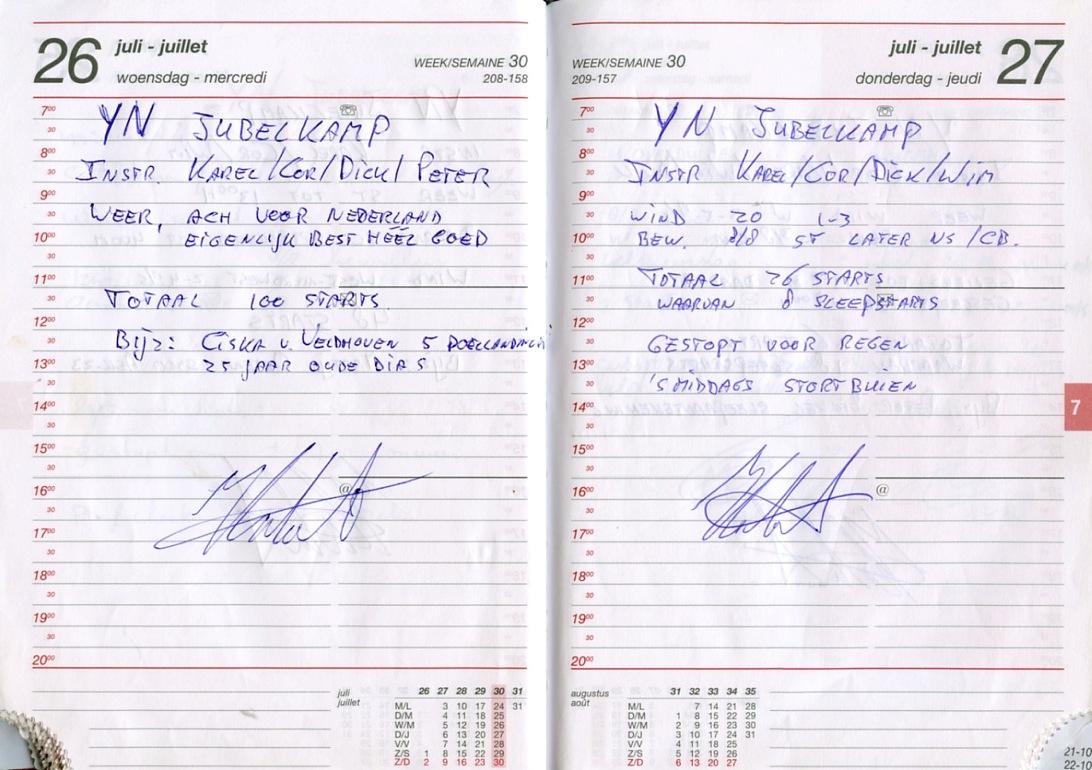 26 juli - juillet
woensdag - mercredi
WEEK/SEMAINE 30
208-158
7⁰⁰
YN JUBELKAMP
30
8⁰⁰
INSTR. KAREL/COR/DICK/PETER
30
9⁰⁰
WEER, ACH VOOR NEDERLAND
30
EIGENLIJK BEST HÉÉL GOED
10⁰⁰
30
11⁰⁰
TOTAAL 100 STARTS
30
12⁰⁰
BIJZ: CISKA V. VELDHOVEN 5
30
25 JAAR OUDE DIA S
13⁰⁰
30
14⁰⁰
30
15⁰⁰
30
16⁰⁰
@
30
17⁰⁰
30
18⁰⁰
30
19⁰⁰
30
20⁰⁰
juli
juillet
26 27 28 29 30 31
M/L 3 10 17 24 31
D/M 4 11 18 25
W/M 5 12 19 26
D/J 6 13 20 27
V/V 7 14 21 28
Z/S 1 8 15 22 29
Z/D 2 9 16 23 30
juli - juillet 27
donderdag - jeudi
WEEK/SEMAINE 30
209-157
7⁰⁰
YN JUBELKAMP
30
8⁰⁰
INSTR KAREL/COR/DICK/WIM
30
9⁰⁰
WIND 20 1-3
30
BEW. 8/8 ST LATER NS/CB.
10⁰⁰
30
11⁰⁰
TOTAAL 26 STARTS
30
WAARVAN 8 SLEEPSTARTS
12⁰⁰
30
GESTOPT VOOR REGEN
13⁰⁰
30
'S MIDDAGS STORTBUIEN
14⁰⁰
30
15⁰⁰
30
16⁰⁰
@
30
17⁰⁰
30
18⁰⁰
30
19⁰⁰
30
20⁰⁰
7
augustus
août
31 32 33 34 35
M/L 7 14 21 28
D/M 1 8 15 22 29
W/M 2 9 16 23 30
D/J 3 10 17 24 31
V/V 4 11 18 25
Z/S 5 12 19 26
Z/D 6 13 20 27
21-10
22-10